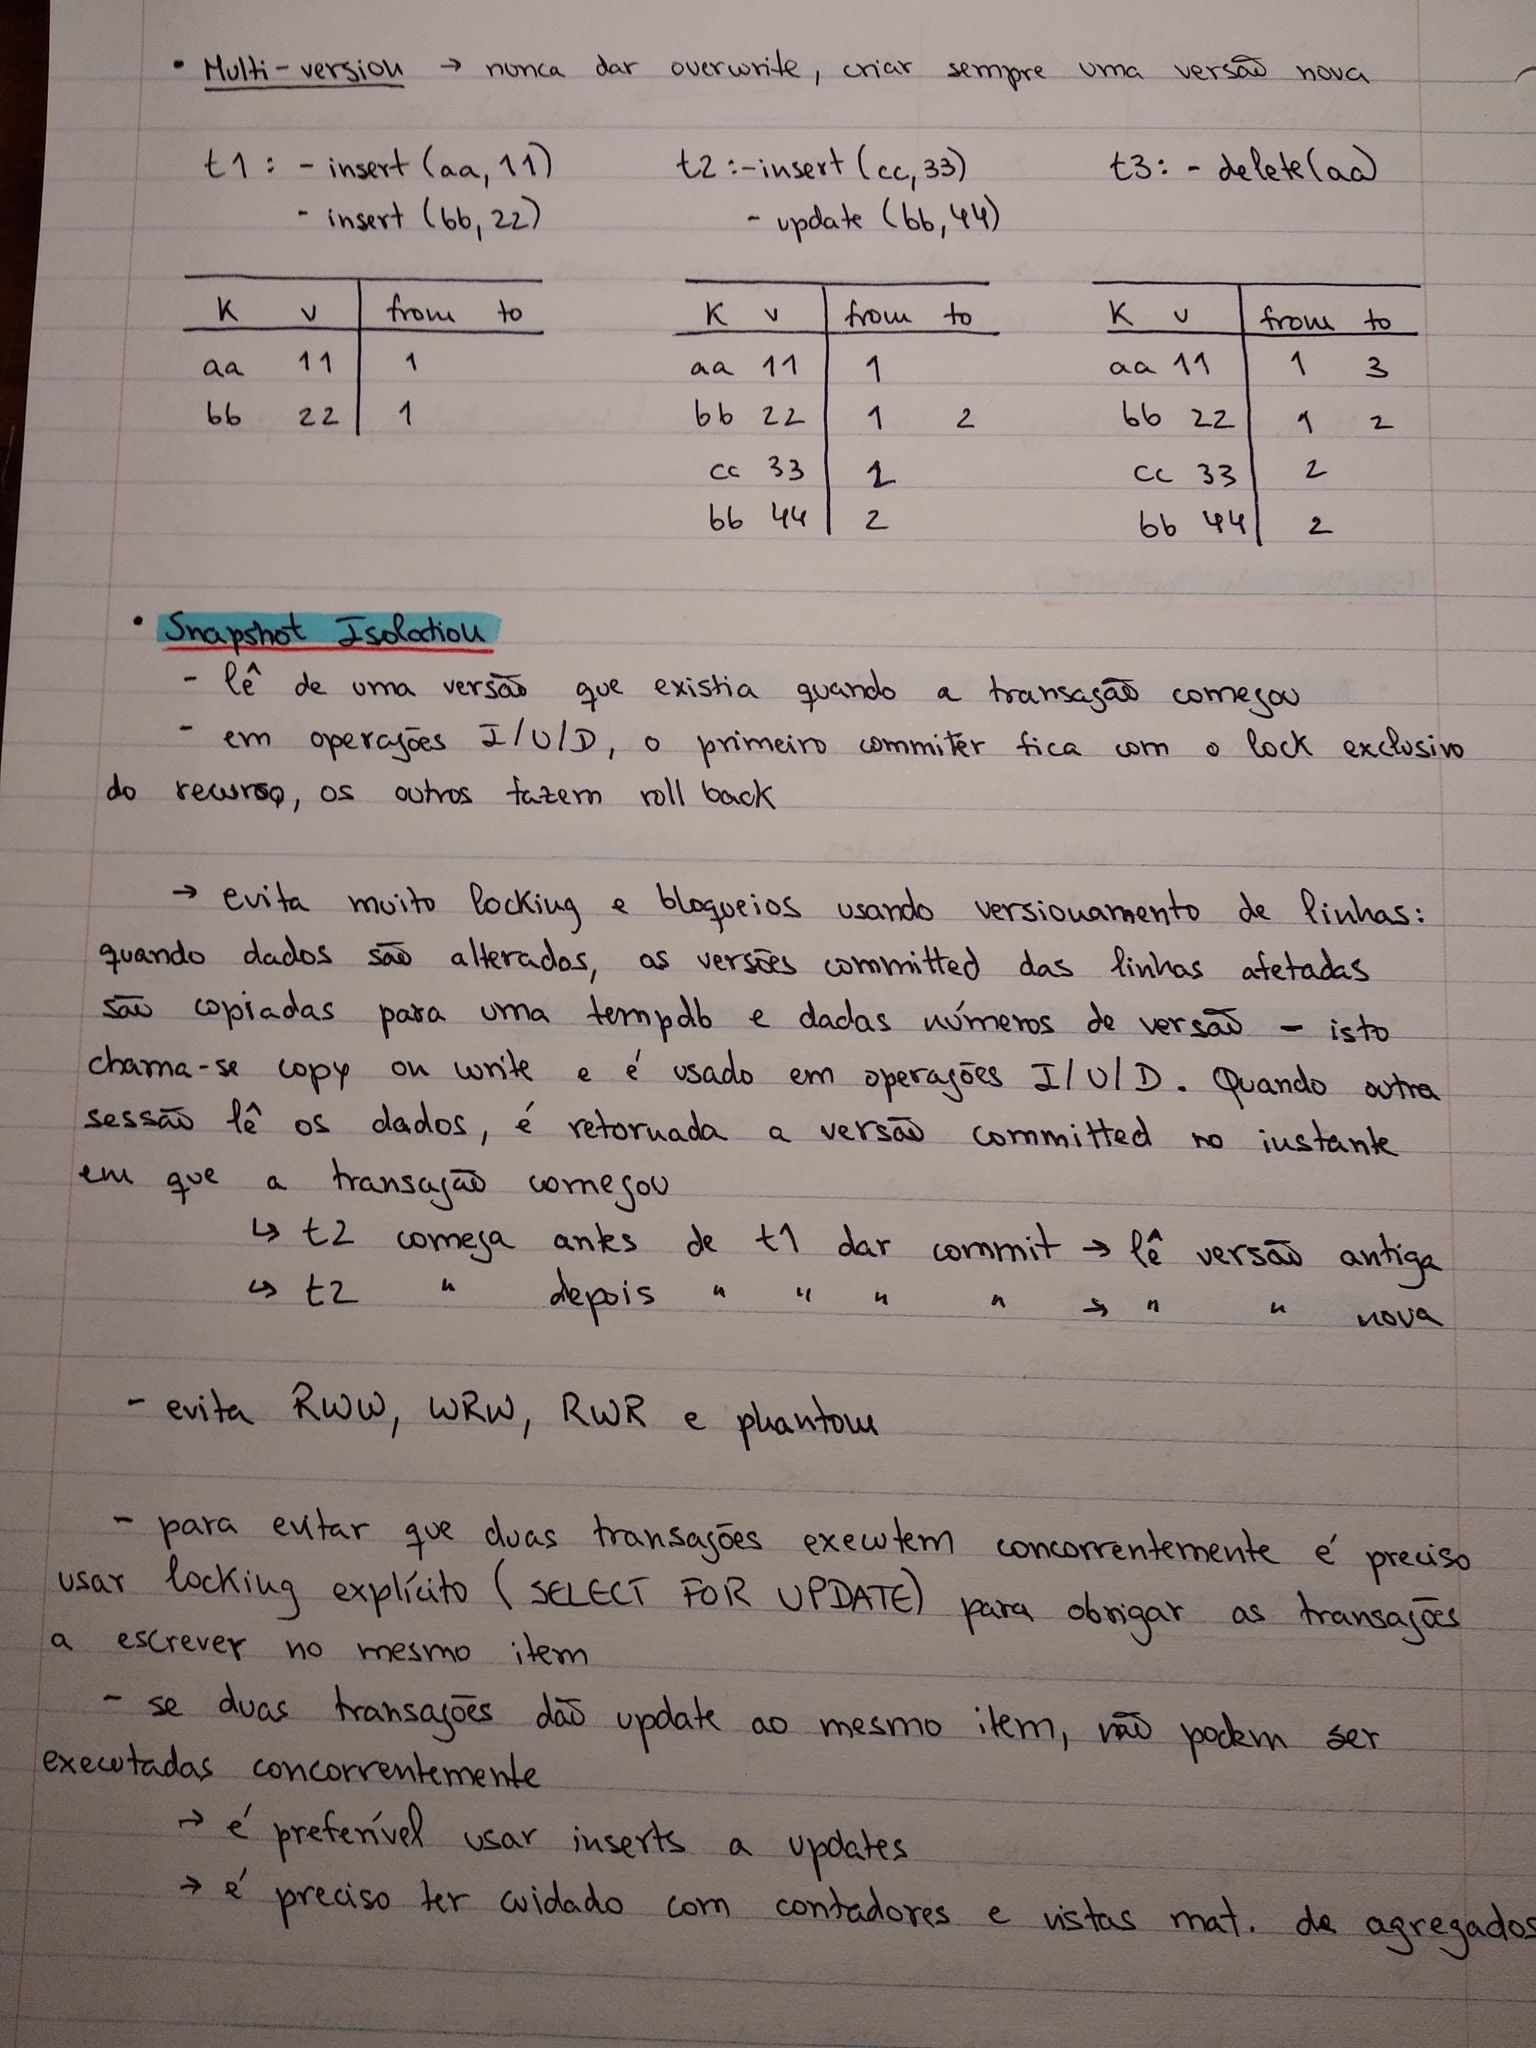 • Multi-version → nunca dar overwrite, criar sempre uma versão nova
t1: - insert (aa, 11) t2: - insert (cc, 33) t3: - delete (aa)
- insert (bb, 22) - update (bb, 44)
K v from to K v from to K v from to
aa 11 1 aa 11 1 aa 11 1 3
bb 22 1 bb 22 1 2 bb 22 1 2
cc 33 2 cc 33 2
bb 44 2 bb 44 2
• Snapshot Isolation
- lê de uma versão que existia quando a transação começou
- em operações I/U/D, o primeiro commiter fica com o lock exclusivo
do recurso, os outros fazem roll back
→ evita muito locking e bloqueios usando versionamento de linhas:
quando dados são alterados, as versões committed das linhas afetadas
são copiadas para uma tempdb e dadas números de versão - isto
chama-se copy on write e é usado em operações I/U/D. Quando outra
sessão lê os dados, é retornada a versão committed no instante
em que a transação começou
↳ t2 começa antes de t1 dar commit → lê versão antiga
↳ t2 " depois " " " " → " " nova
- evita RWW, WRW, RWR e phantom
- para evitar que duas transações executem concorrentemente é preciso
usar locking explícito (SELECT FOR UPDATE) para obrigar as transações
a escrever no mesmo item
- se duas transações dão update ao mesmo item, não podem ser
executadas concorrentemente
→ é preferível usar inserts a updates
→ é preciso ter cuidado com contadores e vistas mat. de agregados